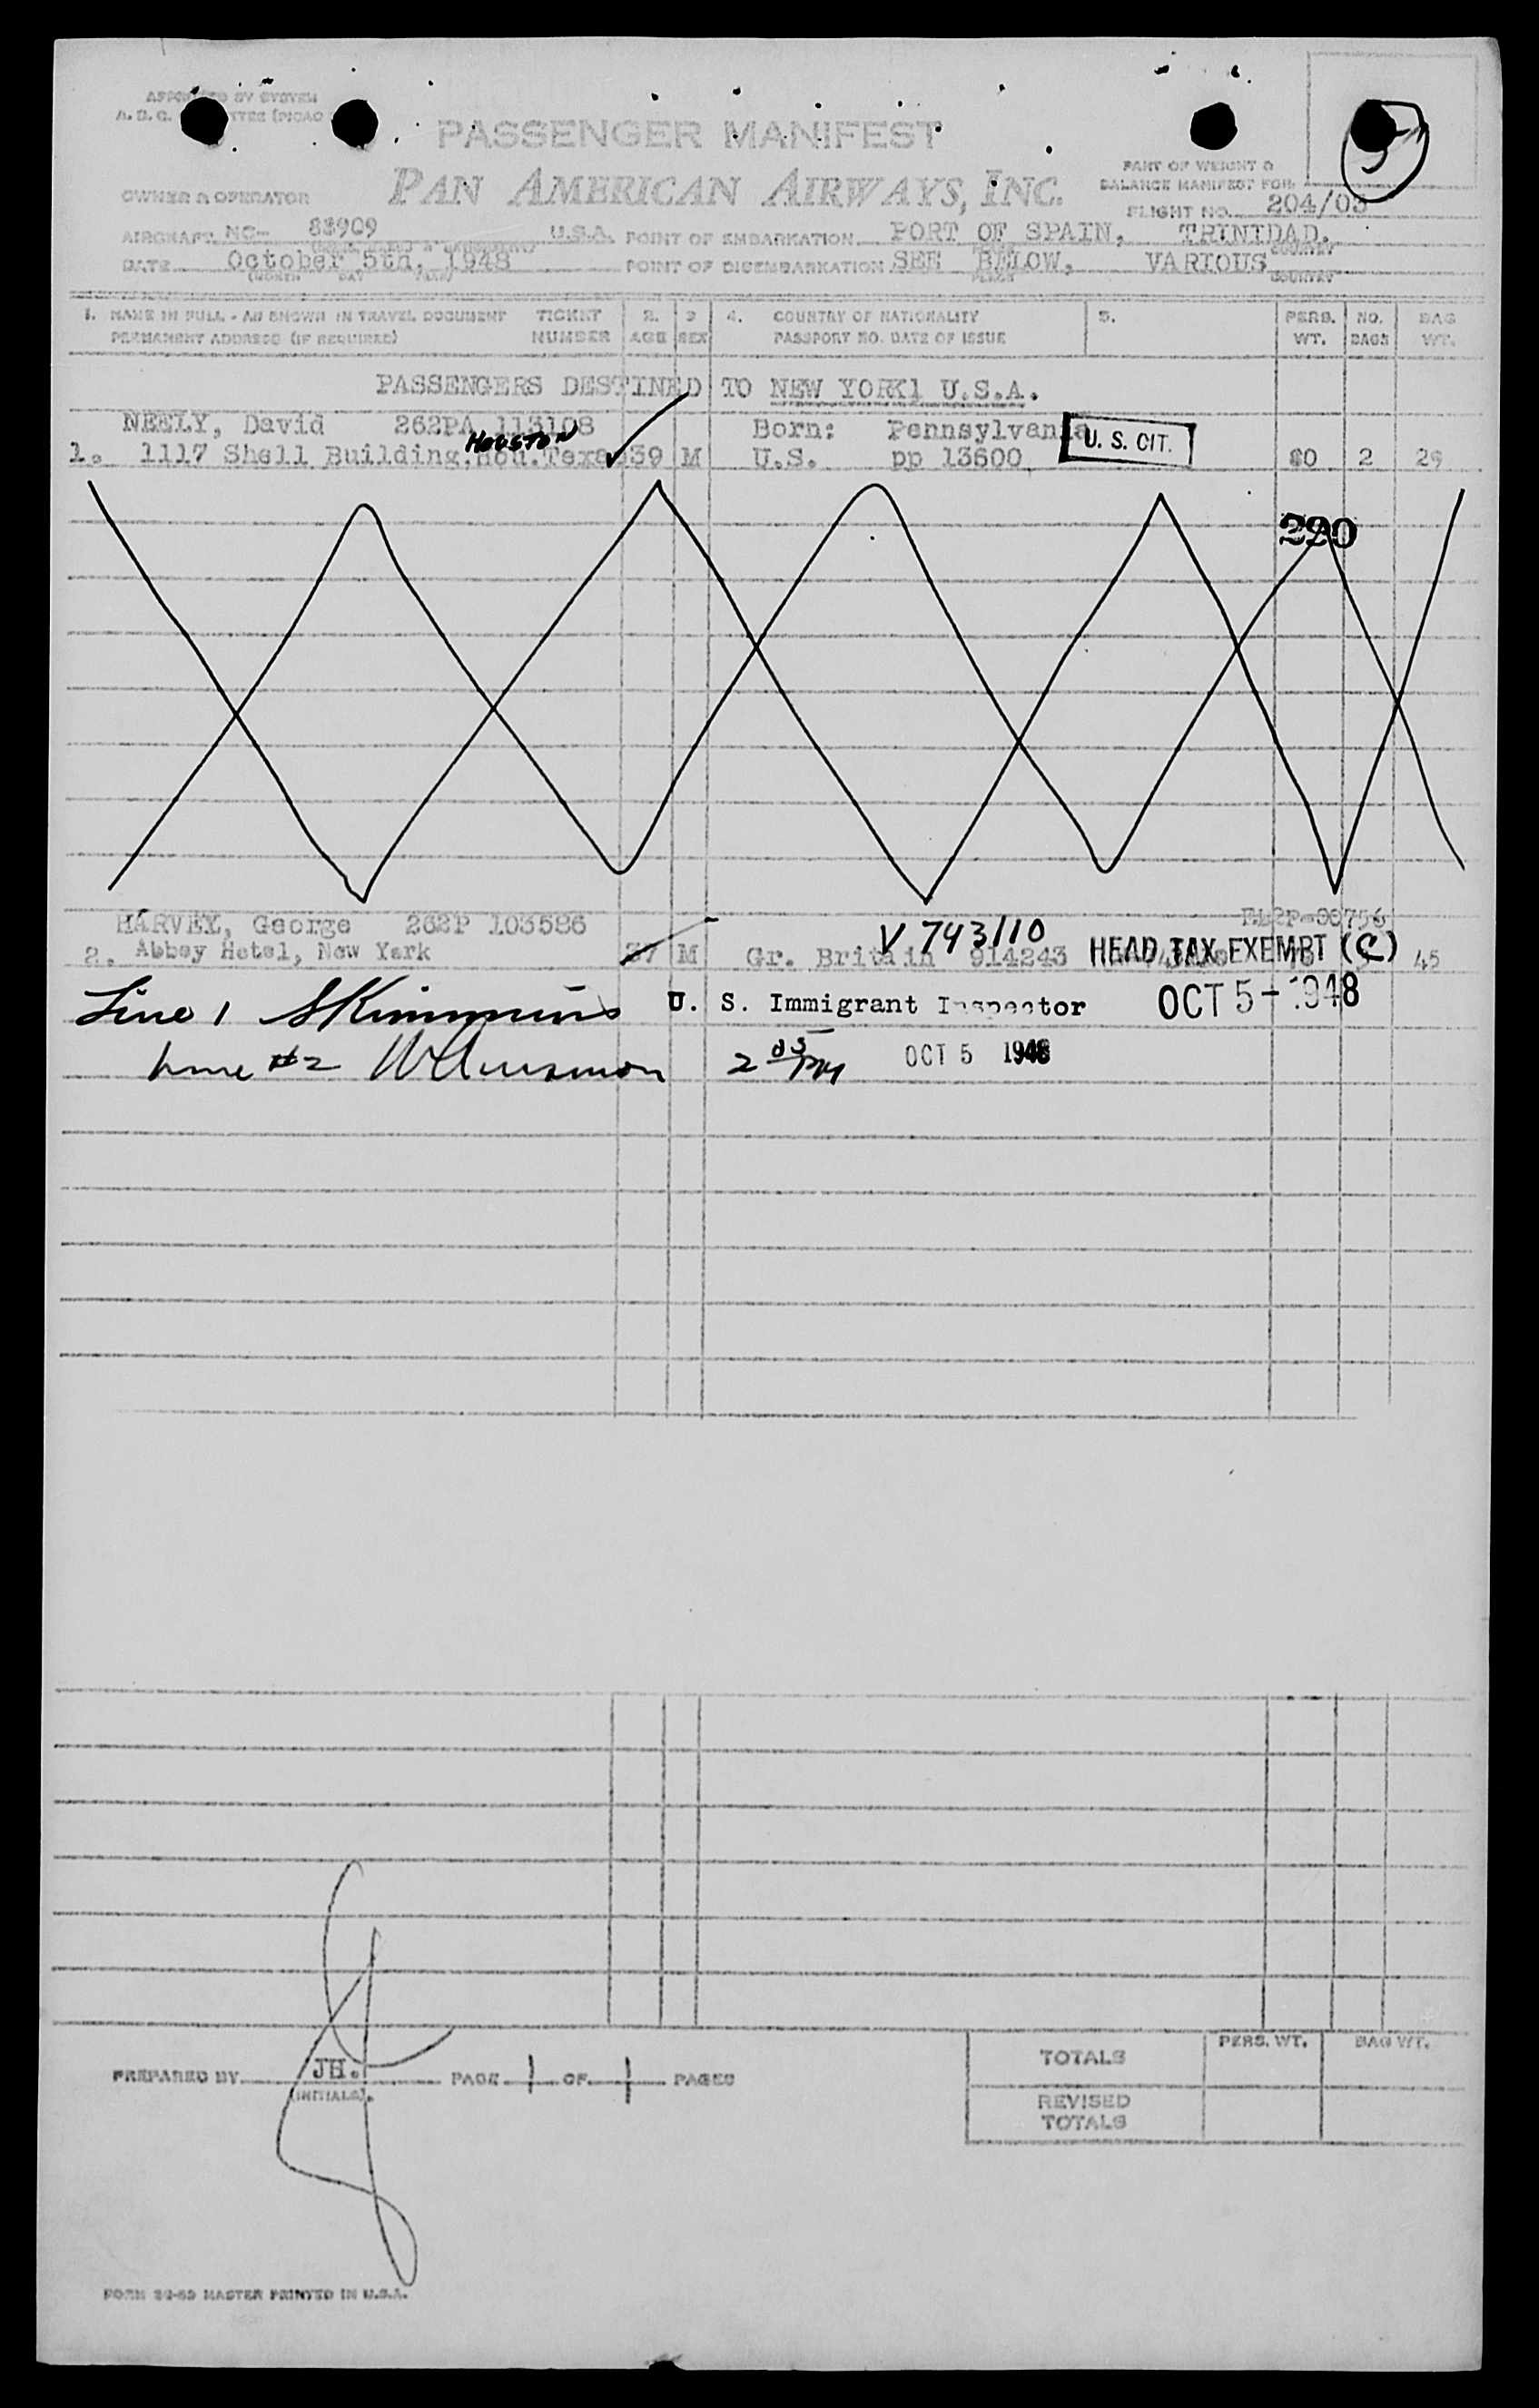 APPROVED BY SYSTEM
A.D.C.
PASSENGER MANIFEST
5
PAN AMERICAN AIRWAYS, INC.
PART OF WEIGHT &
BALANCE MANIFEST FOR
OWNER & OPERATOR
FLIGHT NO. 204/05
AIRCRAFT NC- 88909 U.S.A. POINT OF EMBARKATION PORT OF SPAIN, TRINIDAD.
COUNTRY
DATE October 5th, 1948 POINT OF DISEMBARKATION SEE BELOW, VARIOUS
(MONTH DAY YEAR) PLACE COUNTRY
1. NAME IN FULL - AS SHOWN IN TRAVEL DOCUMENT TICKET 2. 3 4. COUNTRY OF NATIONALITY 5. PERS. NO. BAG
PERMANENT ADDRESS (IF REQUIRED) NUMBER AGE SEX PASSPORT NO. DATE OF ISSUE WT. BAGS WT.
PASSENGERS DESTINED TO NEW YORK1 U.S.A.
NEELY, David 262PA 113108 Born: Pennsylvania
HOUSTON U. S. CIT.
1. 1117 Shell Building, Hou. Texas 39 M U.S. pp 13600 2 29
290
HARVEY, George 262P 103586 V 743110
2. Abbey Hotel, New York 37 M Gr. Britain 914243 HEAD TAX EXEMPT (C) 45
Line 1 SKimmins U. S. Immigrant Inspector OCT 5 - 1948
Line #2 2 05 PM OCT 5 1948
TOTALS PERS. WT. BAG WT.
PREPARED BY JH. PAGE 1 OF 1 PAGES
(INITIALS)
REVISED
TOTALS
FORM 24-69 MASTER PRINTED IN U.S.A.